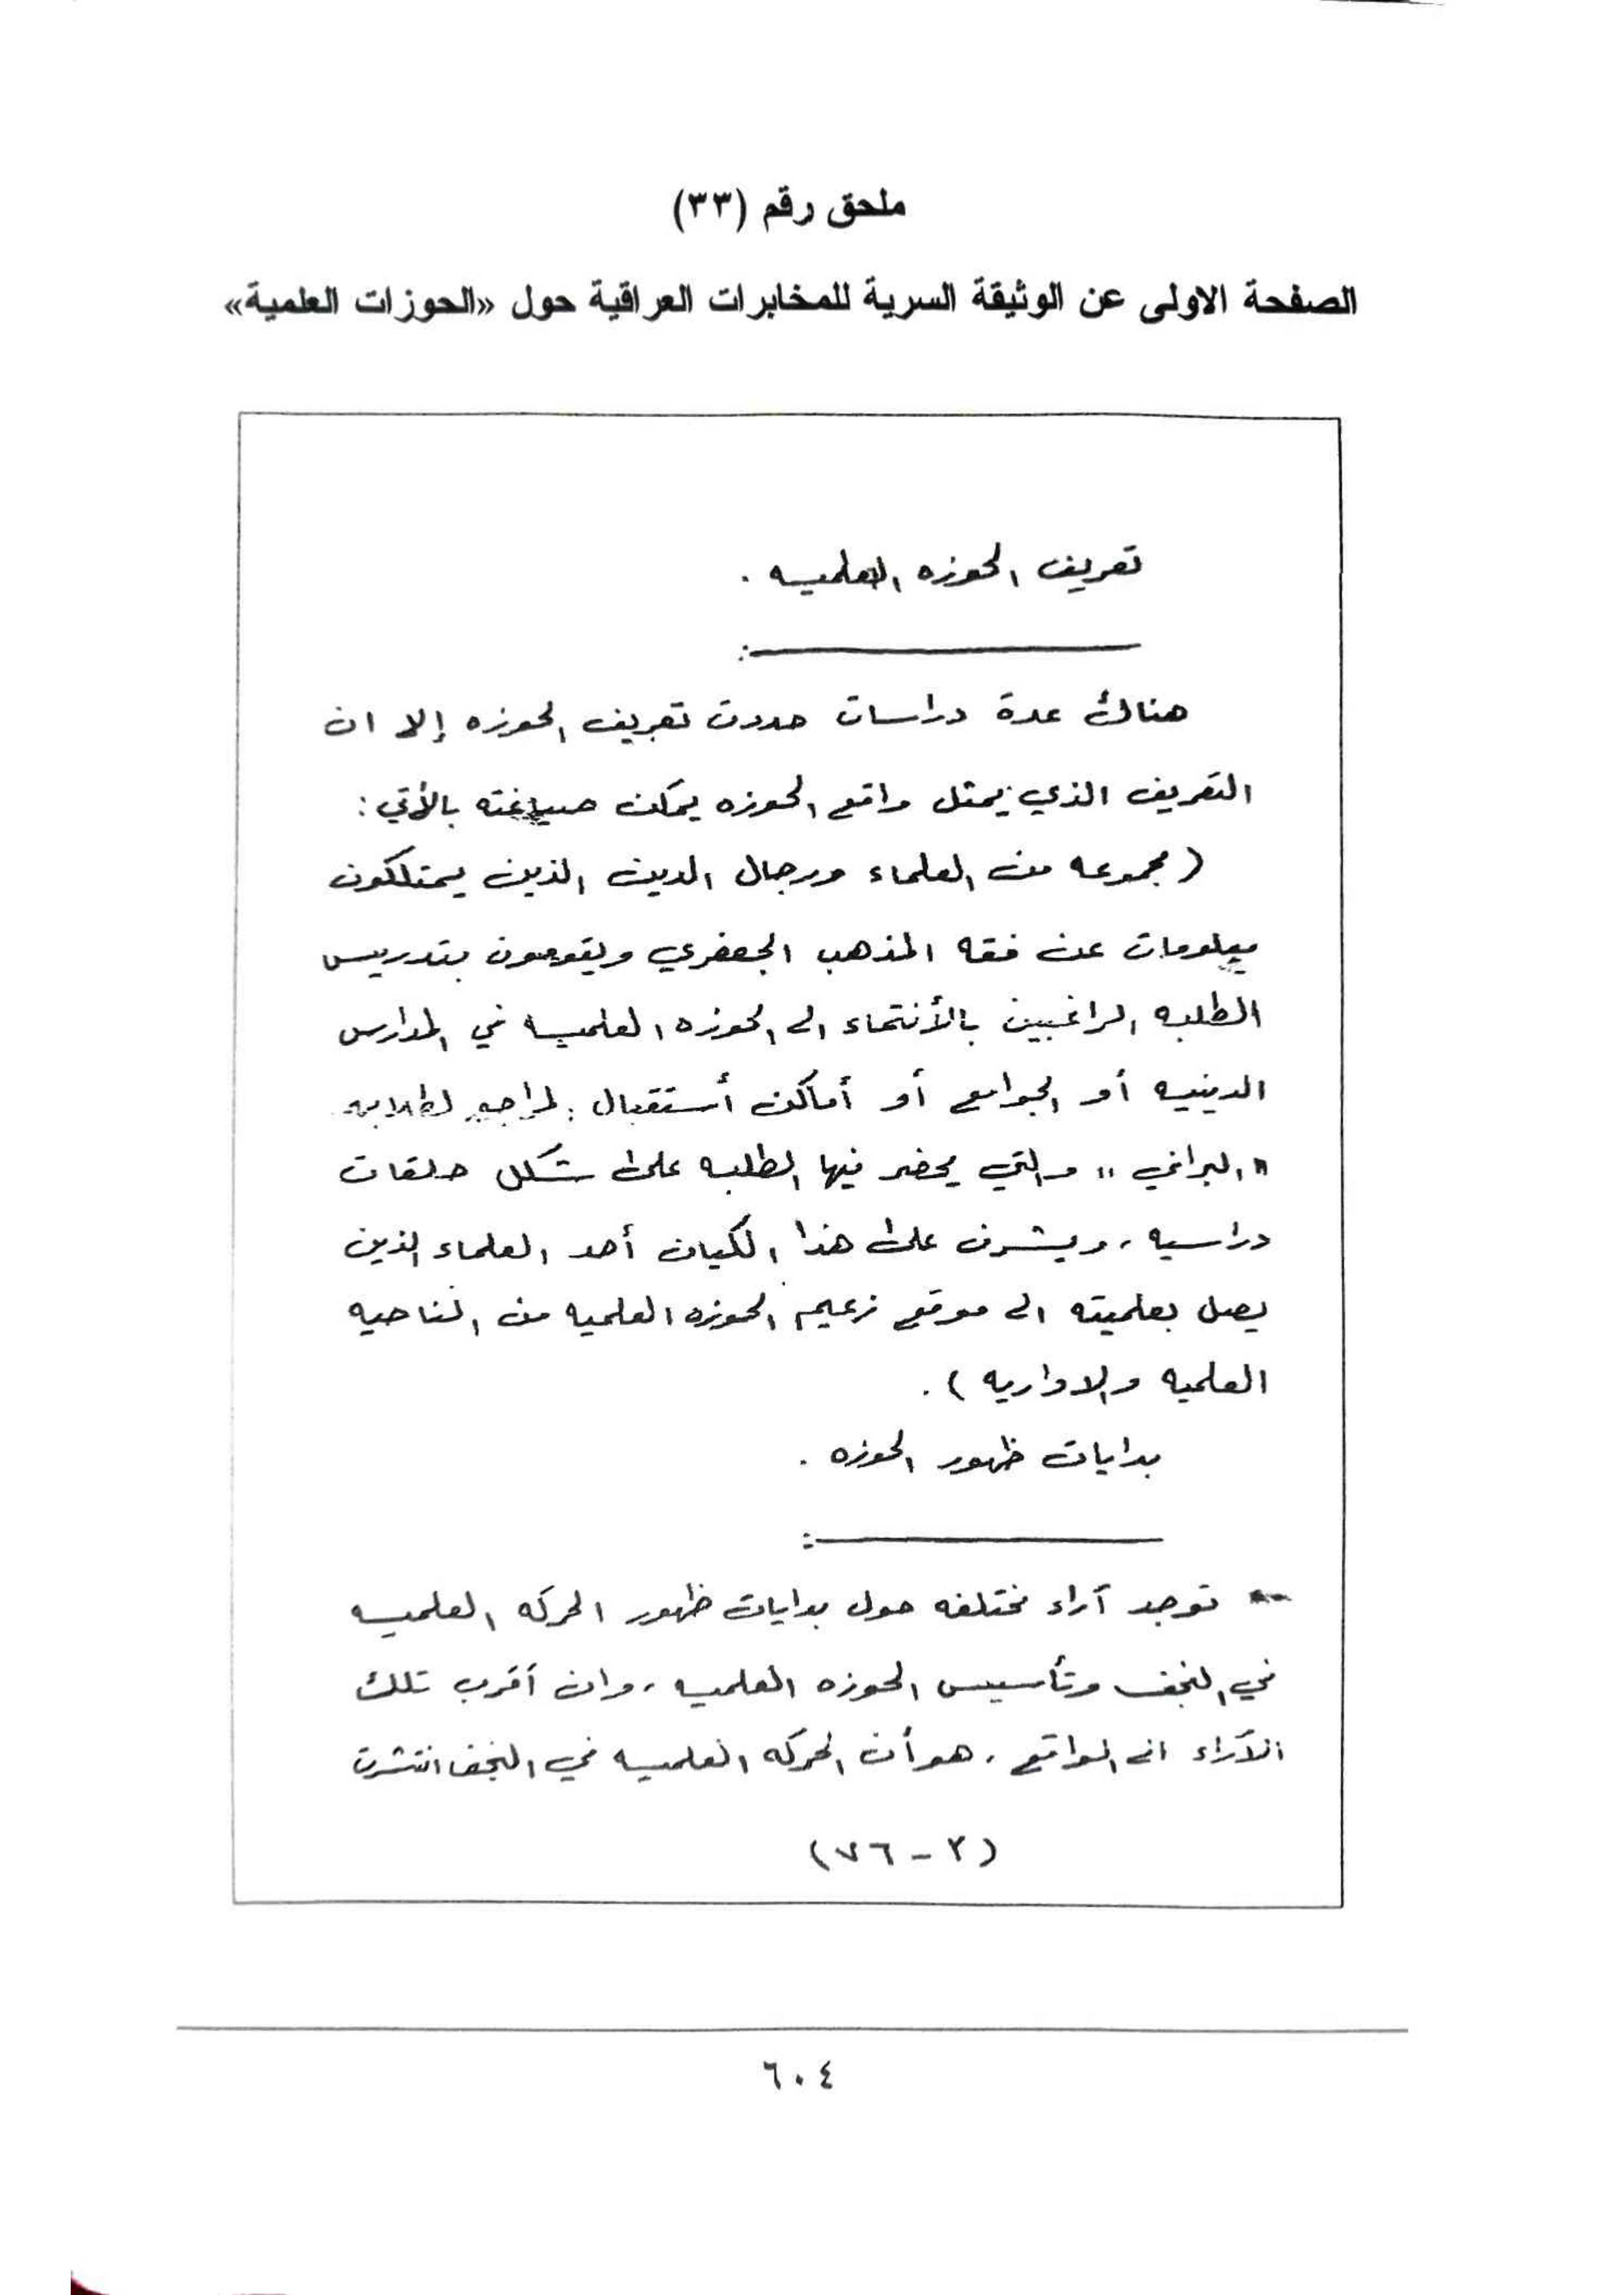 ملحق رقم (٣٣)
الصفحة الاولى عن الوثيقة السرية للمخابرات العراقية حول «الحوزات العلمية»
تعريف الحوزه العلميه .
هناك عدة دراسات حددت تعريف الحوزه إلا ان
التعريف الذي يمثل واقع الحوزه يمكن صياغته بالأتي :
( مجموعه من العلماء ورجال الدين الذين يمتلكون
معلومات عن فقه المذهب الجعفري ويقومون بتدريس
الطلبه الراغبين بالأنتماء الى الحوزه العلميه في المدارس
الدينيه أو الجوامع أو أماكن أستقبال المراجع لطلابه
" البراني " والتي يحضر فيها الطلبه على شكل حلقات
دراسيه ، ويشرف على هذا الكيان أحد العلماء الذين
يصل بعلميته الى موقع زعيم الحوزه العلميه من الناحيه
العلميه والاداريه ) .
بدايات ظهور الحوزه .
توجد آراء مختلفه حول بدايات ظهور الحركه العلميه
في النجف وتأسيس الحوزه العلميه ، وان أقرب تلك
الآراء الى الواقع ، هو أن الحركه العلميه في النجف انتشرت
(٢ - ٧٦)
٦٠٤